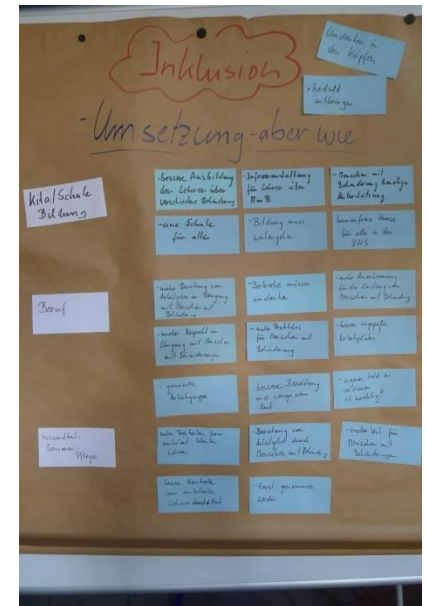 Umdenken in
den Köpfen
Inklusion
- Geduld
mitbringen
- Umsetzung - aber wie
Kita/Schule
Bildung
- bessere Ausbildung
der Lehrer über
verschiedene Behinderung
- Infoveranstaltung
für Lehrer über
MmB
- Menschen mit
Behinderung benötigen
Unterstützung
- eine Schule
für alle
- Bildung muss
weitergehen
barrierefreie Kurse
für alle in der
VHS
Beruf
- mehr Beratung von
Arbeitgebern im Umgang
mit Menschen mit
Behinderung
- Betriebe müssen
umdenken
- mehr Anerkennung
für die Leistung von
Menschen mit Behinderung
- mehr Respekt im
Umgang mit Menschen
mit Behinderungen
- mehr Praktikas
für Menschen mit
Behinderung
- besser angepasste
Arbeitsplätze
gemischte
Arbeitsgruppen
- bessere Bezahlung
und weniger vom
Amt
- eigenes Geld zu
verdienen
ist wichtig
Senioren-
Pflege
Beratung von
Arbeitgeber durch
Menschen mit Behinderung
- mehr Zeit für
Menschen mit
Behinderungen
- besser Kontrolle